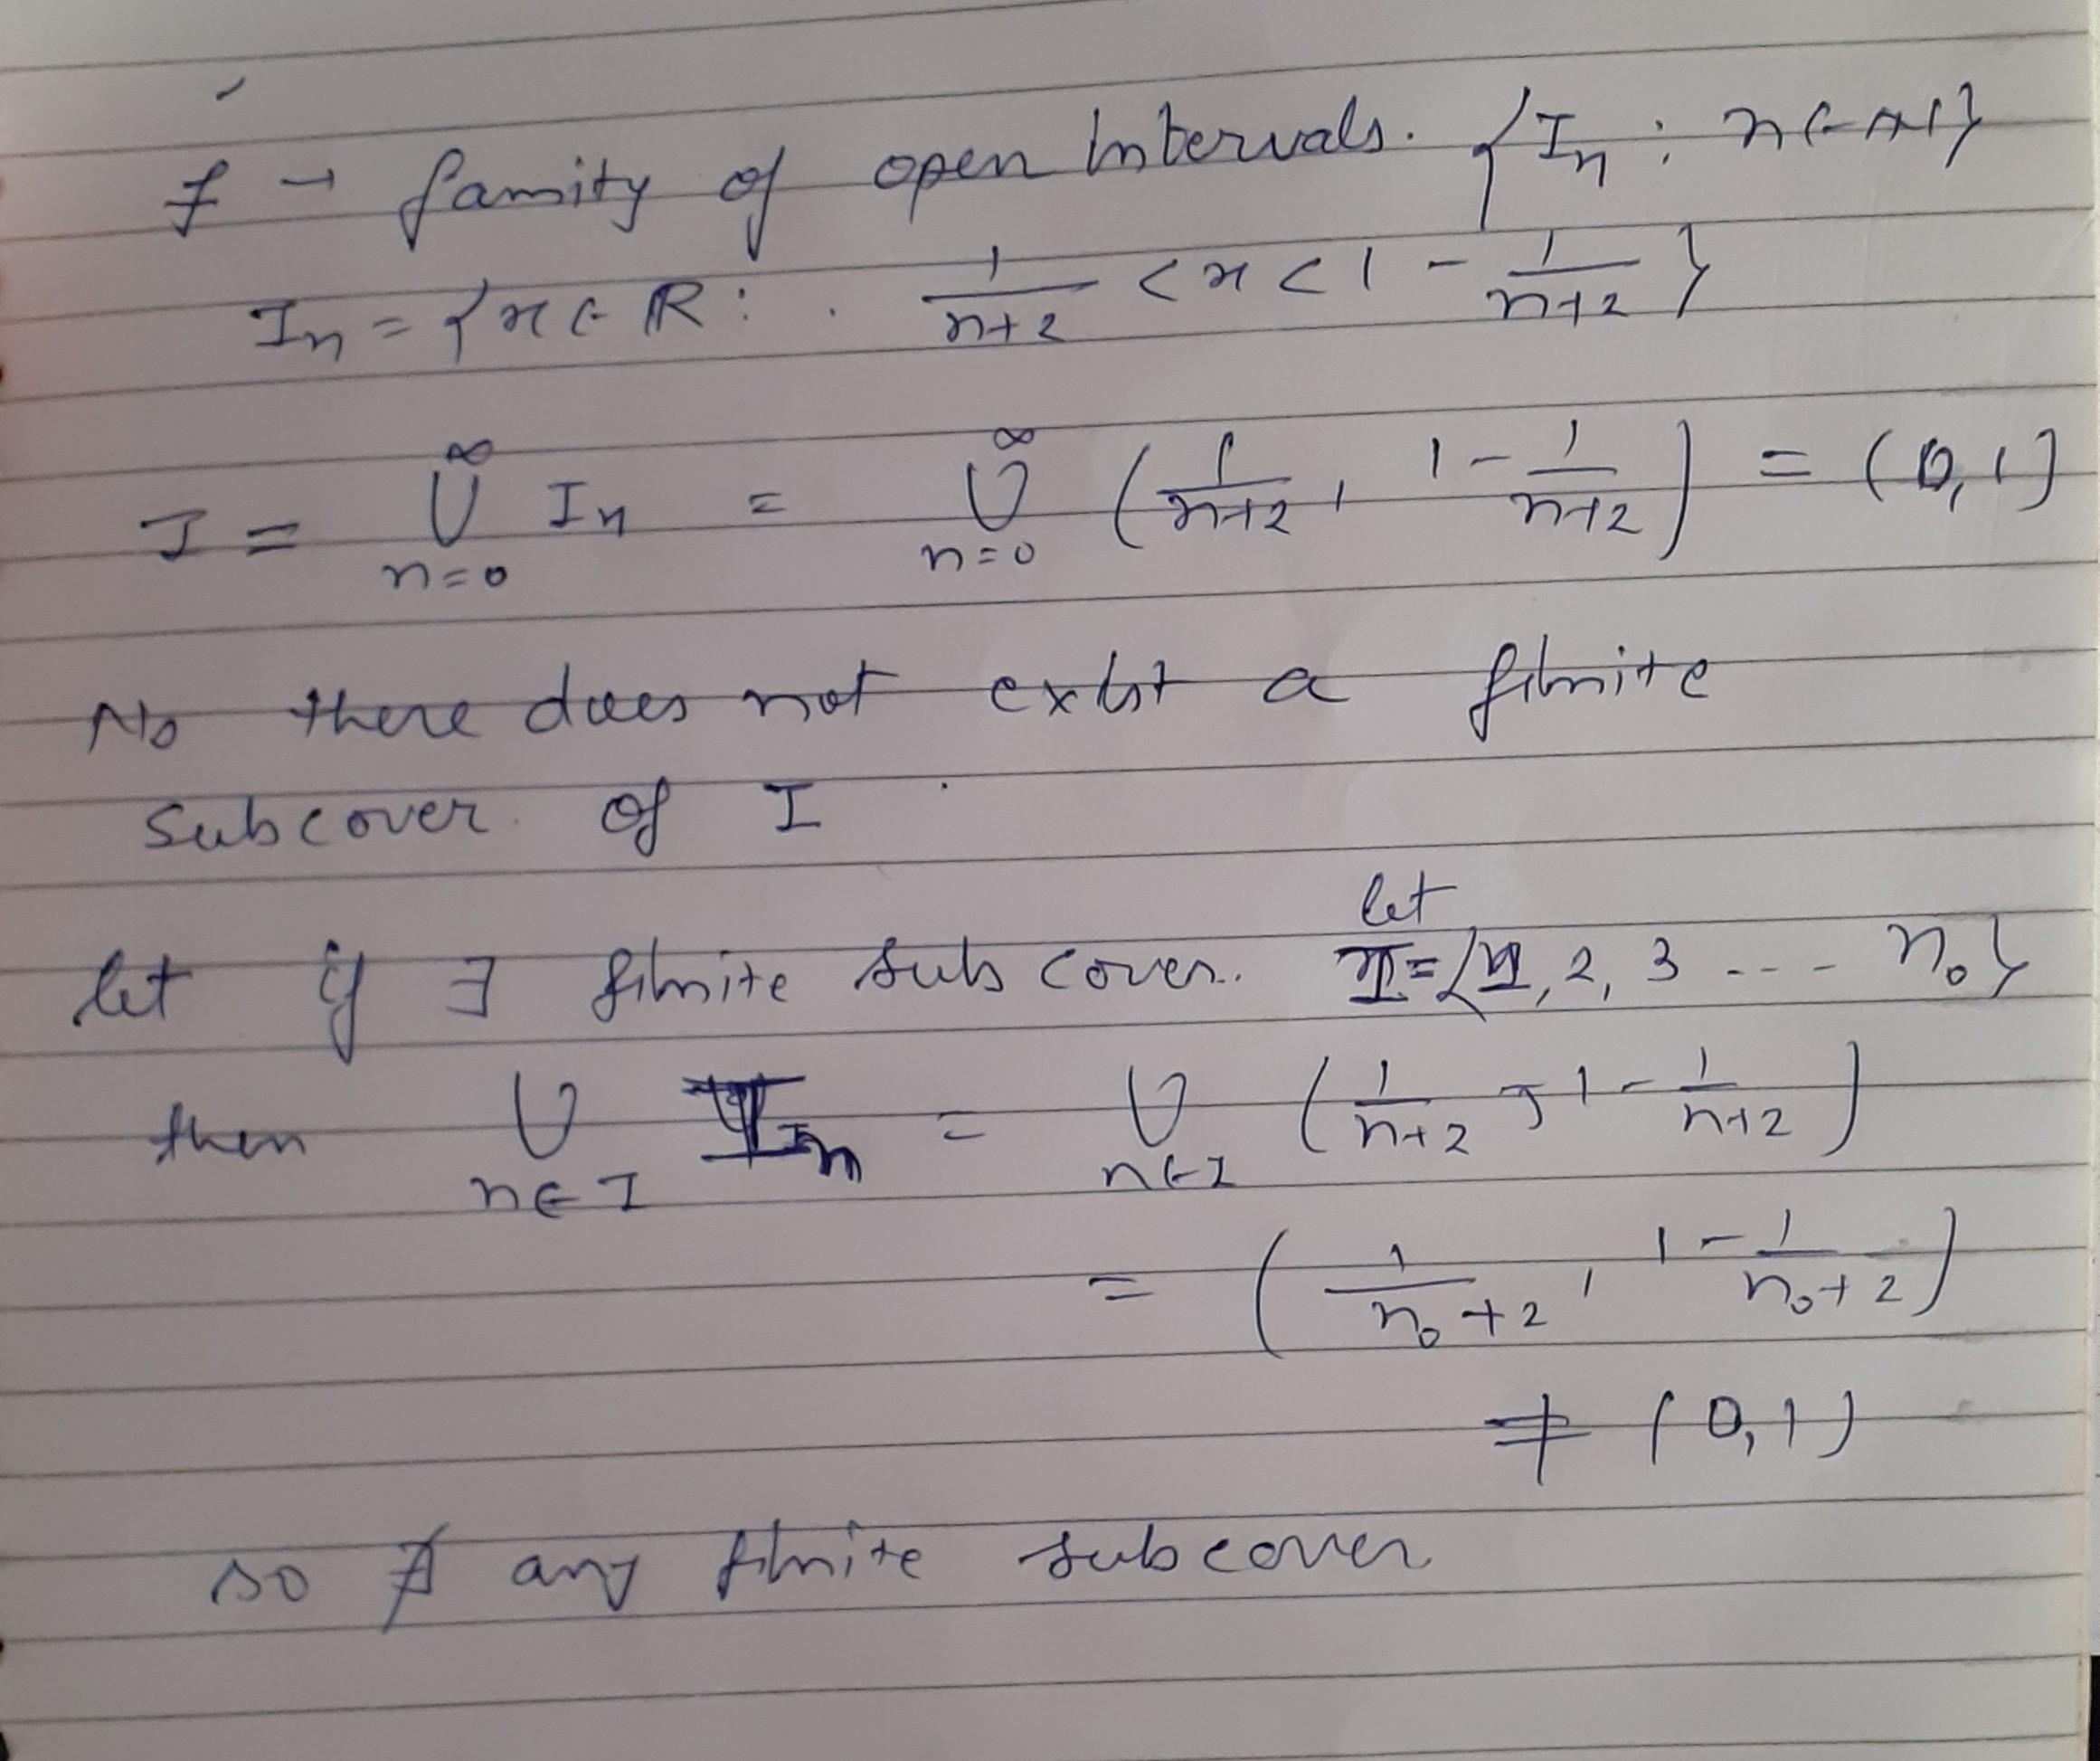 f → family of open intervals. {I_n : n ∈ N}
I_n = {x ∈ R : 1/(n+2) < x < 1 - 1/(n+2)}
I = ∞∪n=0 I_n = ∞∪n=0 (1/(n+2), 1 - 1/(n+2)) = (0,1)
No there does not exist a finite
subcover of I
let
let if ∃ finite sub cover. I = {1, 2, 3 --- n₀}
then ∪n∈I I_n = ∪n∈I (1/(n+2), 1 - 1/(n+2))
= (1/(n₀+2), 1 - 1/(n₀+2))
≠ (0,1)
so ∄ any finite subcover